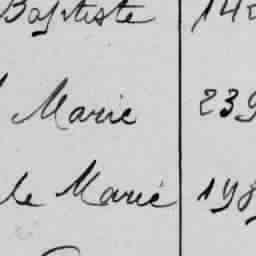 Baptiste 14
Marie 239
le Marie 198